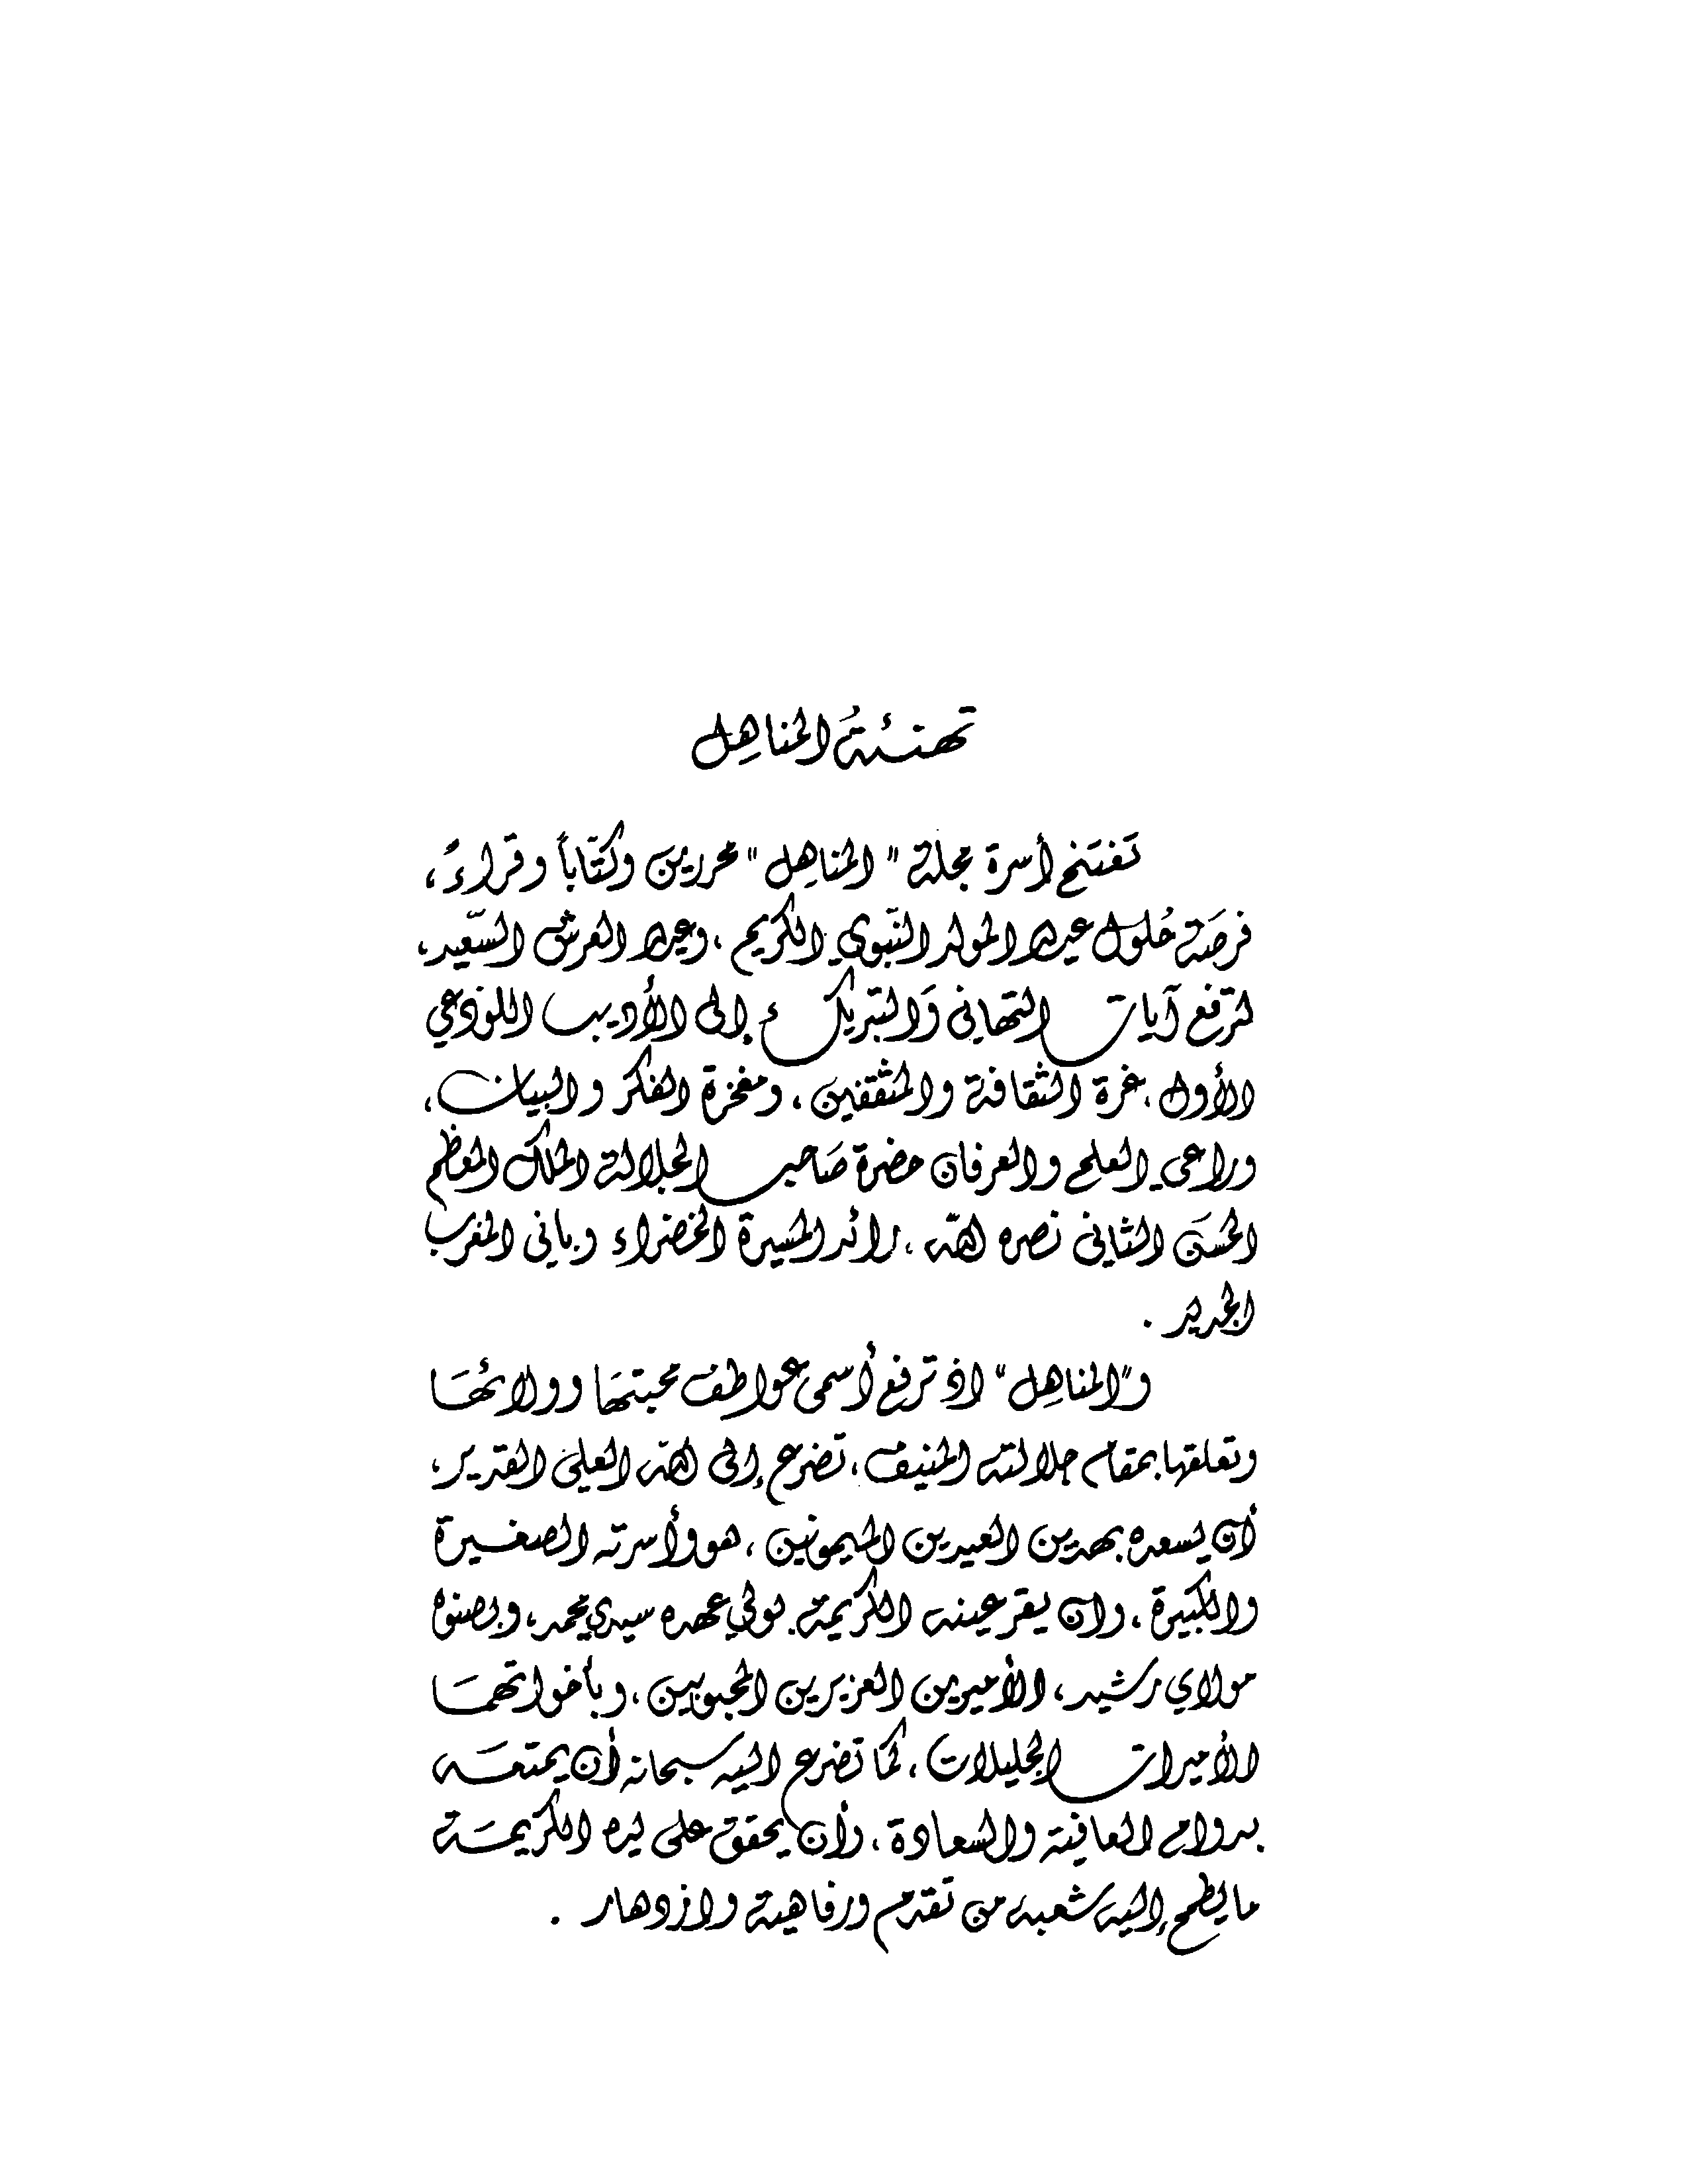 تهنئةُ المناهِل
تَفتَتح أسرة مجلة " المناهِل " محررين وكتّاباً وقراءً،
فرصَة حُلول عيد المولد النّبوي الكريم ، وعيد العرش السّعيد،
لترفع آيات التهاني وَالتبريك إلى الأديب اللوذعي
الأول ، غرة الثقافة والمثقفين ، ومفخرة الفكر والبيان ،
وراعي العلم والعرفان حضرة صَاحب الجلالة الملك المعظم
الحسَن الثاني نصره الله ، رائد المسيرة الخضراء وباني المغرب
الجديد .
و"المناهِل" اذ ترفع أسمى عواطف محبتهَا وولائهَا
وتعلقها بمقام جلالته المنيف ، تضرع إلى الله العلي القدير،
أن يسعده بهذين العيدين الميمونين ، هو وأسرته الصغيرة
والكبيرة ، وان يقر عينه الكريمة بولي عهده سيدي محمد ، وبصنوه
مولاي رشيد ، الأميرين العزيزين المحبوبين ، وبأخواتهمَا
الأميرات الجليلات ، كما تضرع اليه سبحانه أن يمتعَه
بدوام العافية والسعادة ، وأن يحقق على يده الكريمَة
ما يطمح إليه شعبه من تقدم ورفاهية وازدهار .